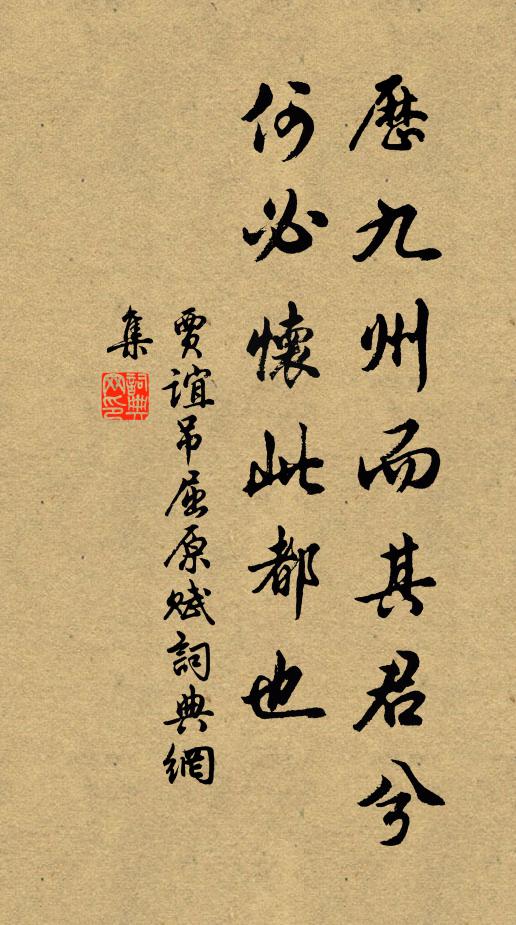 歷九州而其君兮
何必懷此都也
賈誼吊屈原賦詞典網
集
詞典
網印